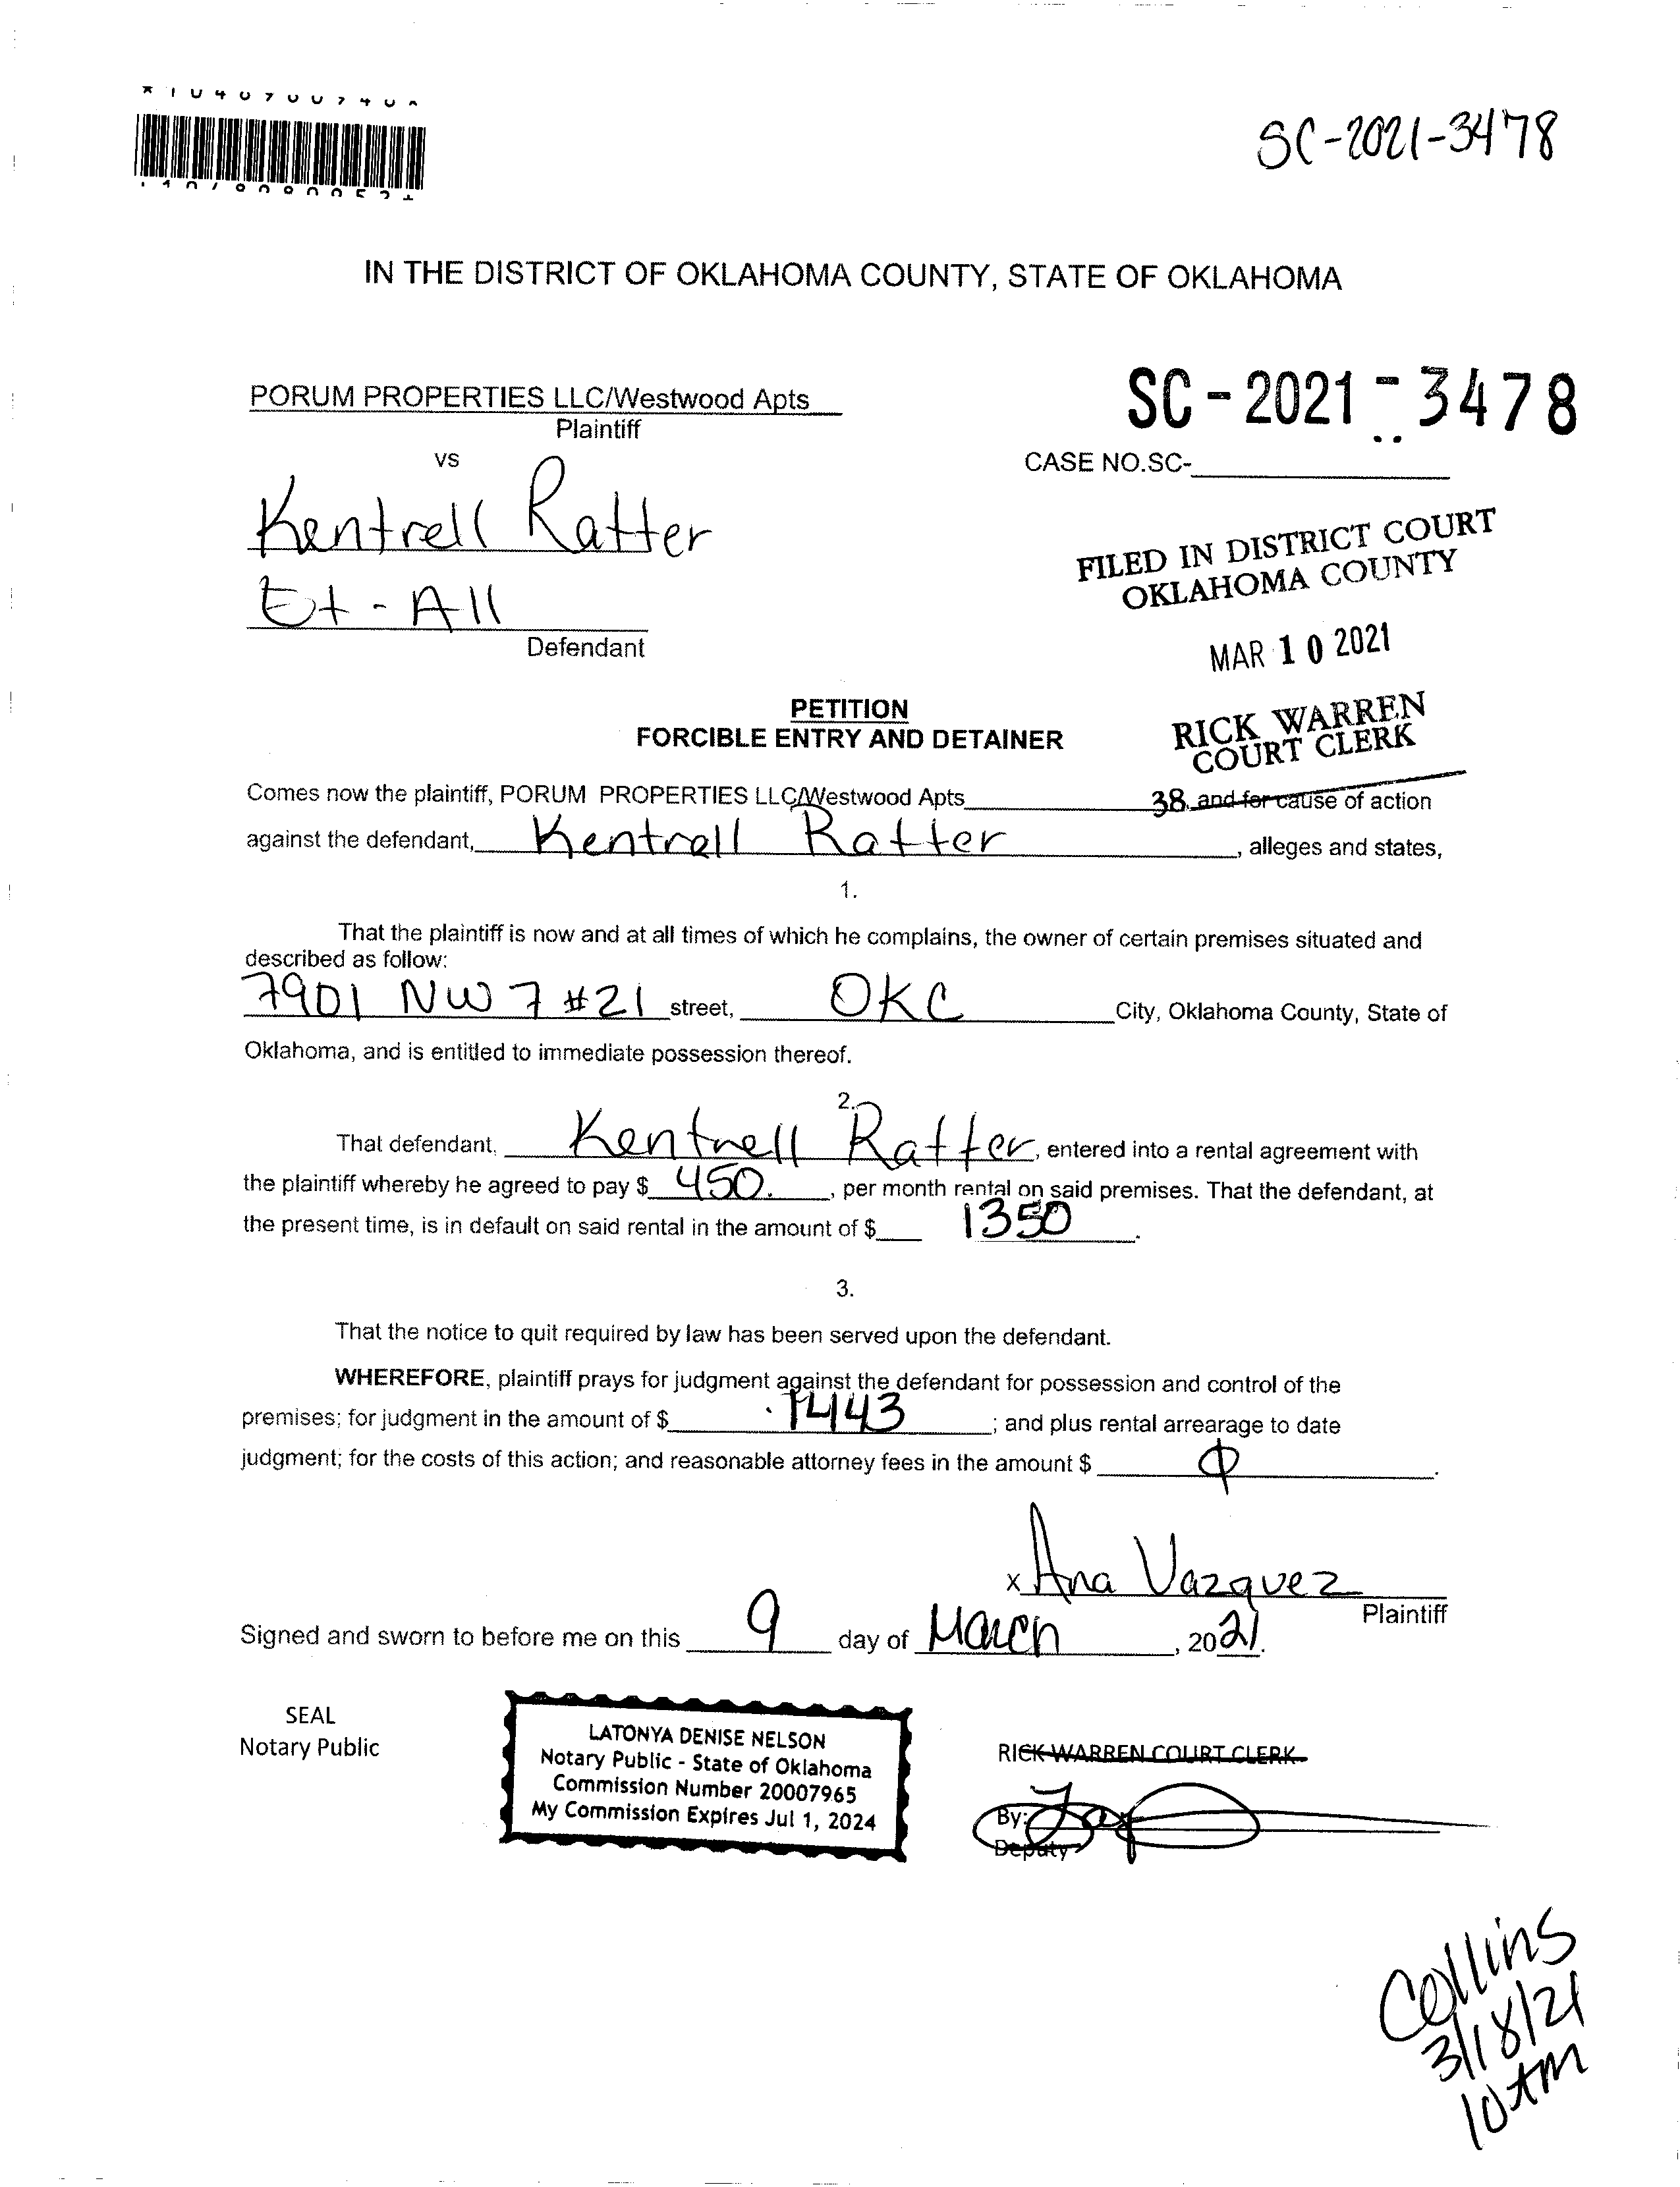 SC-2021-3478
IN THE DISTRICT OF OKLAHOMA COUNTY, STATE OF OKLAHOMA
PORUM PROPERTIES LLC/Westwood Apts
Plaintiff
SC-2021-3478
vs
CASE NO.SC-
Kentrell Ratter
Et-All
Defendant
FILED IN DISTRICT COURT
OKLAHOMA COUNTY
MAR 10 2021
RICK WARREN
COURT CLERK
PETITION
FORCIBLE ENTRY AND DETAINER
38
Comes now the plaintiff, PORUM PROPERTIES LLC/Westwood Apts, and for cause of action
against the defendant, Kentrell Ratter, alleges and states,
1.
That the plaintiff is now and at all times of which he complains, the owner of certain premises situated and
described as follow:
7901 NW 7 #21 street, OKC City, Oklahoma County, State of
Oklahoma, and is entitled to immediate possession thereof.
2.
That defendant, Kentrell Ratter, entered into a rental agreement with
the plaintiff whereby he agreed to pay $ 450. , per month rental on said premises. That the defendant, at
the present time, is in default on said rental in the amount of $ 1350.
3.
That the notice to quit required by law has been served upon the defendant.
WHEREFORE, plaintiff prays for judgment against the defendant for possession and control of the
premises; for judgment in the amount of $ 1443 ; and plus rental arrearage to date
judgment; for the costs of this action; and reasonable attorney fees in the amount $ Φ.
x Ana Vazquez
Plaintiff
Signed and sworn to before me on this 9 day of March, 2021.
SEAL
Notary Public
LATONYA DENISE NELSON
Notary Public - State of Oklahoma
Commission Number 20007965
My Commission Expires Jul 1, 2024
RICK WARREN COURT CLERK
By:
Deputy
Collins
3/18/21
10 Am